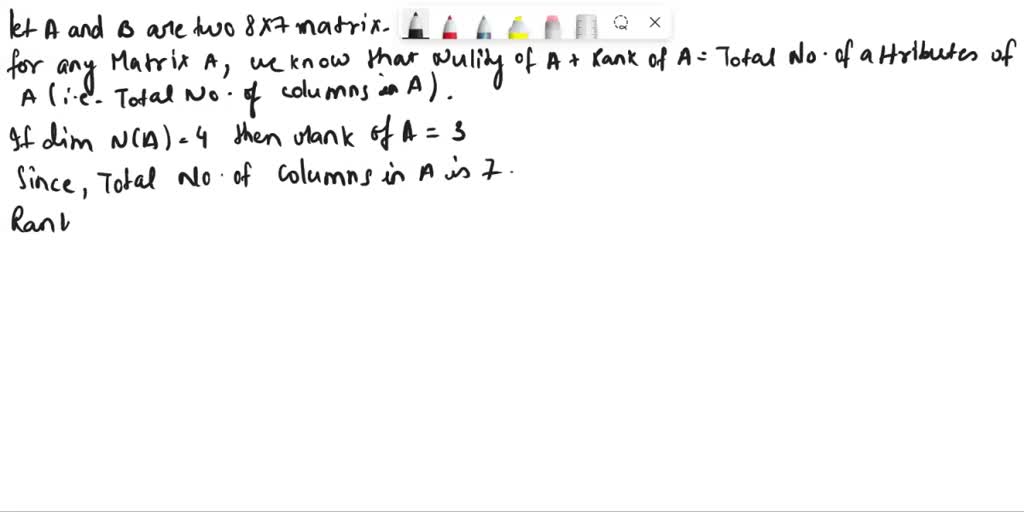 let A and B are two 8x7 matrix.
for any Matrix A, we know that Nulity of A + Rank of A = Total No. of attributes of
A (i.e. Total No. of columns in A).
If dim N(A) = 4 then rank of A = 3
Since, Total No. of columns in A is 7.
Rank